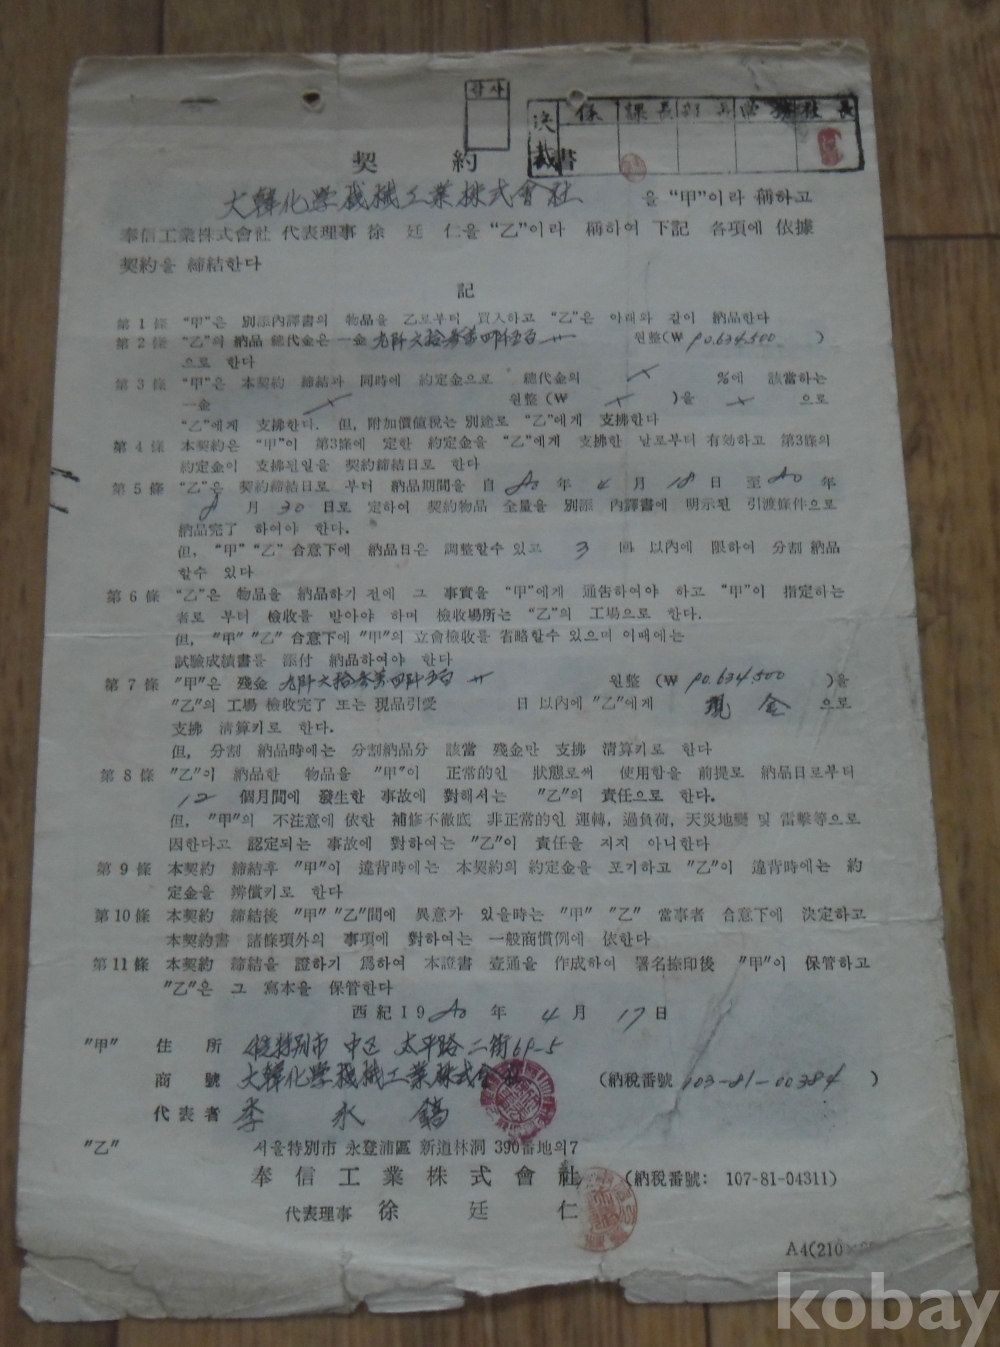 감사
決裁 係 課長 部長 常務 社長
契約書
大韓化学機械工業株式會社 을 “甲”이라 稱하고
奉信工業株式會社 代表理事 徐廷仁을 “乙”이라 稱하여 下記 各項에 依據
契約을 締結한다
記
第1條 “甲”은 別添內譯書의 物品을 乙로부터 買入하고 “乙”은 아래와 같이 納品한다
第2條 “乙”의 納品 總代金은 一金 九阡六拾參萬四阡五百 원整(₩ 90,634,500 )
으로 한다
第3條 “甲”은 本契約 締結과 同時에 約定金으로 總代金의 × %에 該當하는
一金 × 원整(₩ × )을 × 으로
“乙”에게 支拂한다. 但, 附加價値稅는 別途로 “乙”에게 支拂한다
第4條 本契約은 “甲”이 第3條에 定한 約定金을 “乙”에게 支拂한 날로부터 有効하고 第3條의
約定金이 支拂된일을 契約締結日로 한다
第5條 “乙”은 契約締結日로 부터 納品期間을 自 80 年 4 月 18 日 至 80 年
8 月 30 日로 定하여 契約物品 全量을 別添 內譯書에 明示된 引渡條件으로
納品完了 하여야 한다.
但, “甲” “乙” 合意下에 納品日은 調整할수 있고 3 回 以內에 限하여 分割 納品
할수 있다
第6條 “乙”은 物品을 納品하기 전에 그 事實을 “甲”에게 通告하여야 하고 “甲”이 指定하는
者로 부터 檢收를 받아야 하며 檢收場所는 “乙”의 工場으로 한다.
但, “甲” “乙” 合意下에 “甲”의 立會檢收를 省略할수 있으며 이때에는
試驗成績書를 添付 納品하여야 한다
第7條 “甲”은 殘金 九阡六拾參萬四阡五百 원整 (₩ 90,634,500 )을
“乙”의 工場 檢收完了 또는 現品引受 日 以內에 “乙”에게 現金 으로
支拂 清算키로 한다.
但, 分割 納品時에는 分割納品分 該當 殘金만 支拂 清算키로 한다
第8條 “乙”이 納品한 物品을 “甲”이 正常的인 狀態로써 使用함을 前提로 納品日로부터
12 個月間에 發生한 事故에 對해서는 “乙”의 責任으로 한다.
但, “甲”의 不注意에 依한 補修不徹底 非正常的인 運轉, 過負荷, 天災地變 및 雷擊等으로
因한다고 認定되는 事故에 對하여는 “乙”이 責任을 지지 아니한다
第9條 本契約 締結후 “甲”이 違背時에는 本契約의 約定金을 포기하고 “乙”이 違背時에는 約
定金을 辨償키로 한다
第10條 本契約 締結後 “甲” “乙”間에 異意가 있을時는 “甲” “乙” 當事者 合意下에 決定하고
本契約書 諸條項外의 事項에 對하여는 一般商慣例에 依한다
第11條 本契約 締結을 證하기 爲하여 本證書 壹通을 作成하여 署名捺印後 “甲”이 保管하고
“乙”은 그 寫本을 保管한다
西紀19 80 年 4 月 17 日
“甲” 住所 特別市 中区 太平路 二街 69-5
商號 大韓化学機械工業株式會社 (納稅番號 103-81-00384 )
代表者 李永鎬
“乙” 서울特別市 永登浦區 新道林洞 390番地의7
奉信工業株式會社 (納稅番號: 107-81-04311)
代表理事 徐廷仁
A4(210×
kobay